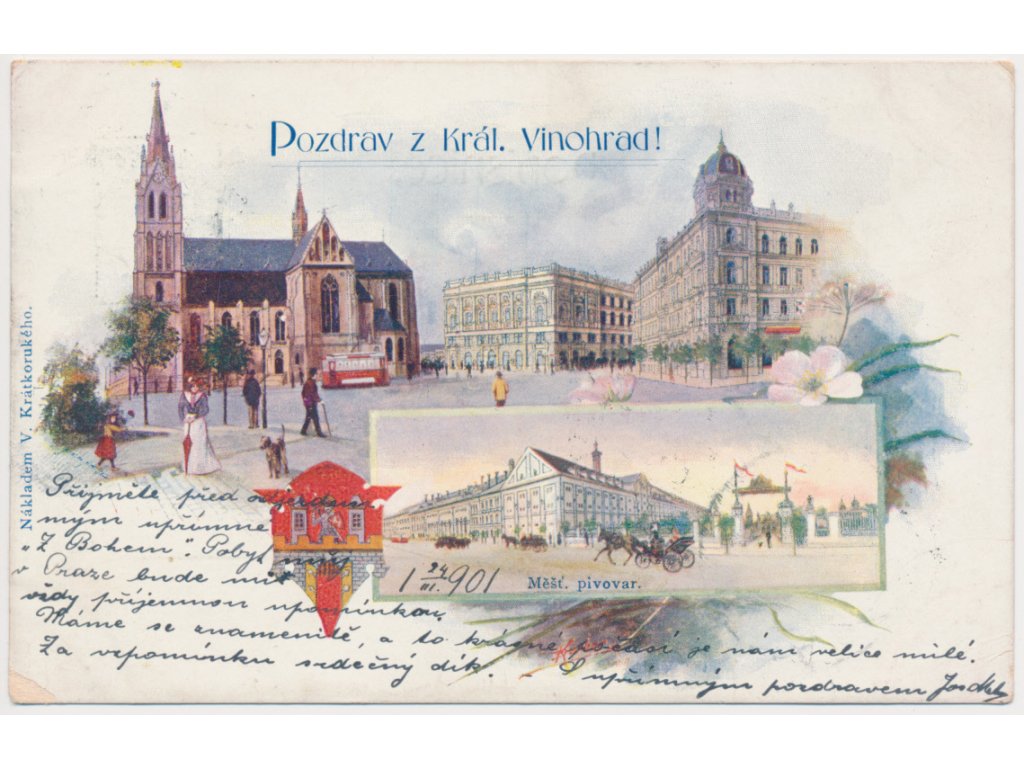 Pozdrav z Král. Vinohrad!
Nákladem V. Krátkorukého.
Přijměte před odjezdem
mým upřímné
„Z Bohem“. Pobyt můj
v Praze bude mít
vždy příjemnou upomínkou.
1 24/III. 901
Měšť. pivovar.
Máme se znamenitě, a to krásné počasí je nám velice milé.
Za vzpomínku srdečný dík.
S upřímným pozdravem Jos